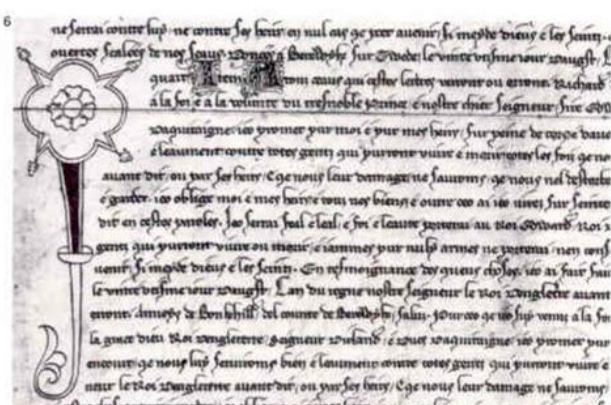 6
ne serrai contre luy, ne contre ses heirs en nul cas qe poet avenir, Si meyde dieus e les seintz.
overtes sealees de nos seaus. Donees a Berewyk sur Twede, le vintime jour Daugst,
quart A tom ceaus qui cestes lettres verront ou orront, Richard
a la foi, e a la volunte du tresnoble Prince, e nostre chier Seigneur, Sire
Daquitaigne, jeo promet pur moi e pur mes heirs, sur peine de corps
e leaument contre totes gentz qui purront vivre e morir, totes les foiz qe
avant dit, ou par ses heirs, E qe nous leur damage ne saverons, qe nous nel
e garder, jeo oblige moi e mes heirs e touz nos biens, e outre ceo ai jeo juree sur seintes
dit en cestes paroles. Jeo serrai feal e leal, e foi e leaute porterai au Roi Edward, Roi
gentz qui purront vivre ou morir, e jammes pur nuly armes ne porterai, nen
Si meyde dieus e les seintz. En tesmoignance des queus choses, jeo ai fait
le vintime jour Daugst, Lan du regne nostre Seigneur le Roi Dengleterre avant
orront. de Bonkhill, del counte de Berewyk, saluz. Pur ceo qe jeo suy venu a la foi
la grace dieu Roi Dengleterre, Seigneur Dirland, e Ducs Daquitaigne, jeo promet pur
encourir, qe nous luy serviroms bien e leaument contre totes gentz qui purront vivre e
neur le Roi Dengleterre avant dit, ou par ses heirs, E qe nous leur damage ne saveroms,